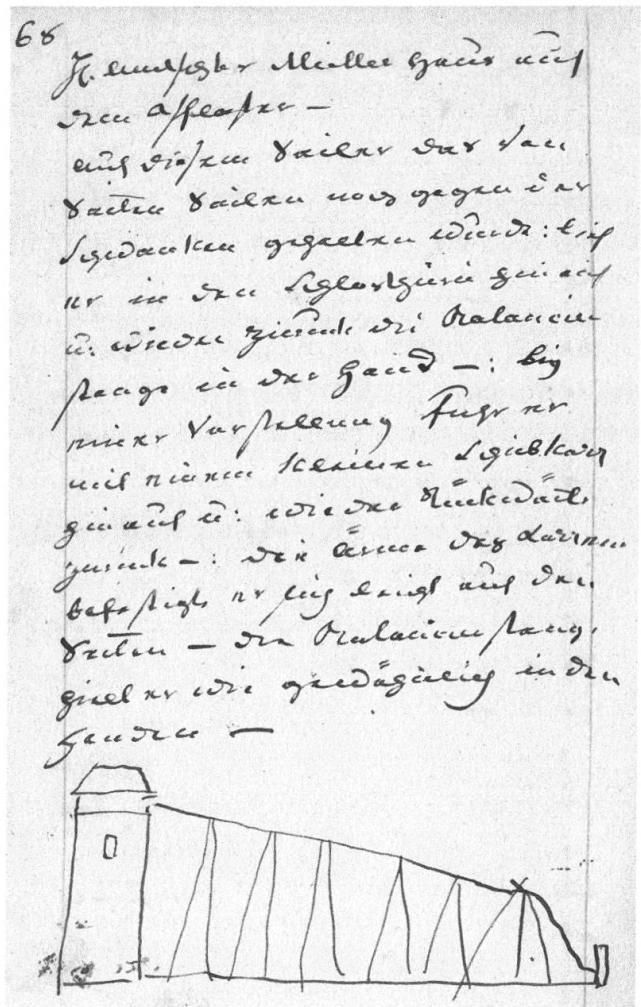 68
Müller Haus auf
dem Pflaster —
auf diesem Sailer das von
Saiten Sailen noch gegen der
Schwanken gehalten wurde: lief
er in den Schlosthurn hinauf
u: wieder zurück die Balancier
stange in der Hand —: bey
einer Vorstellung Fuhr er
mit einem kleinen Schiebkarn
hinauf u: wieder Rückwärts
zurück —: die ärme des Karrens
befestigte er sich auf den
Seiten — die Balancierstang.
hielt er wie gewöhnlich in den
Henden —